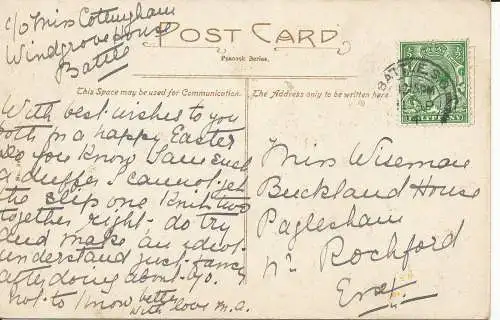 c/o Miss Cottingham
Windgrove House
Battle
POST CARD
Peacock Series.
This Space may be used for Communication.
The Address only to be written here.
With best wishes to you
both for a happy Easter
Do you know I am such
a duffer I cannot get
the slip one Knit two
together right. do try
and make an idiot
understand just fancy
after doing about 40.
not to know better
with love M.C.
BATTLE
HALFPENNY
Miss Wiseman
Buckland House
Paglesham
Nr Rochford
Essex